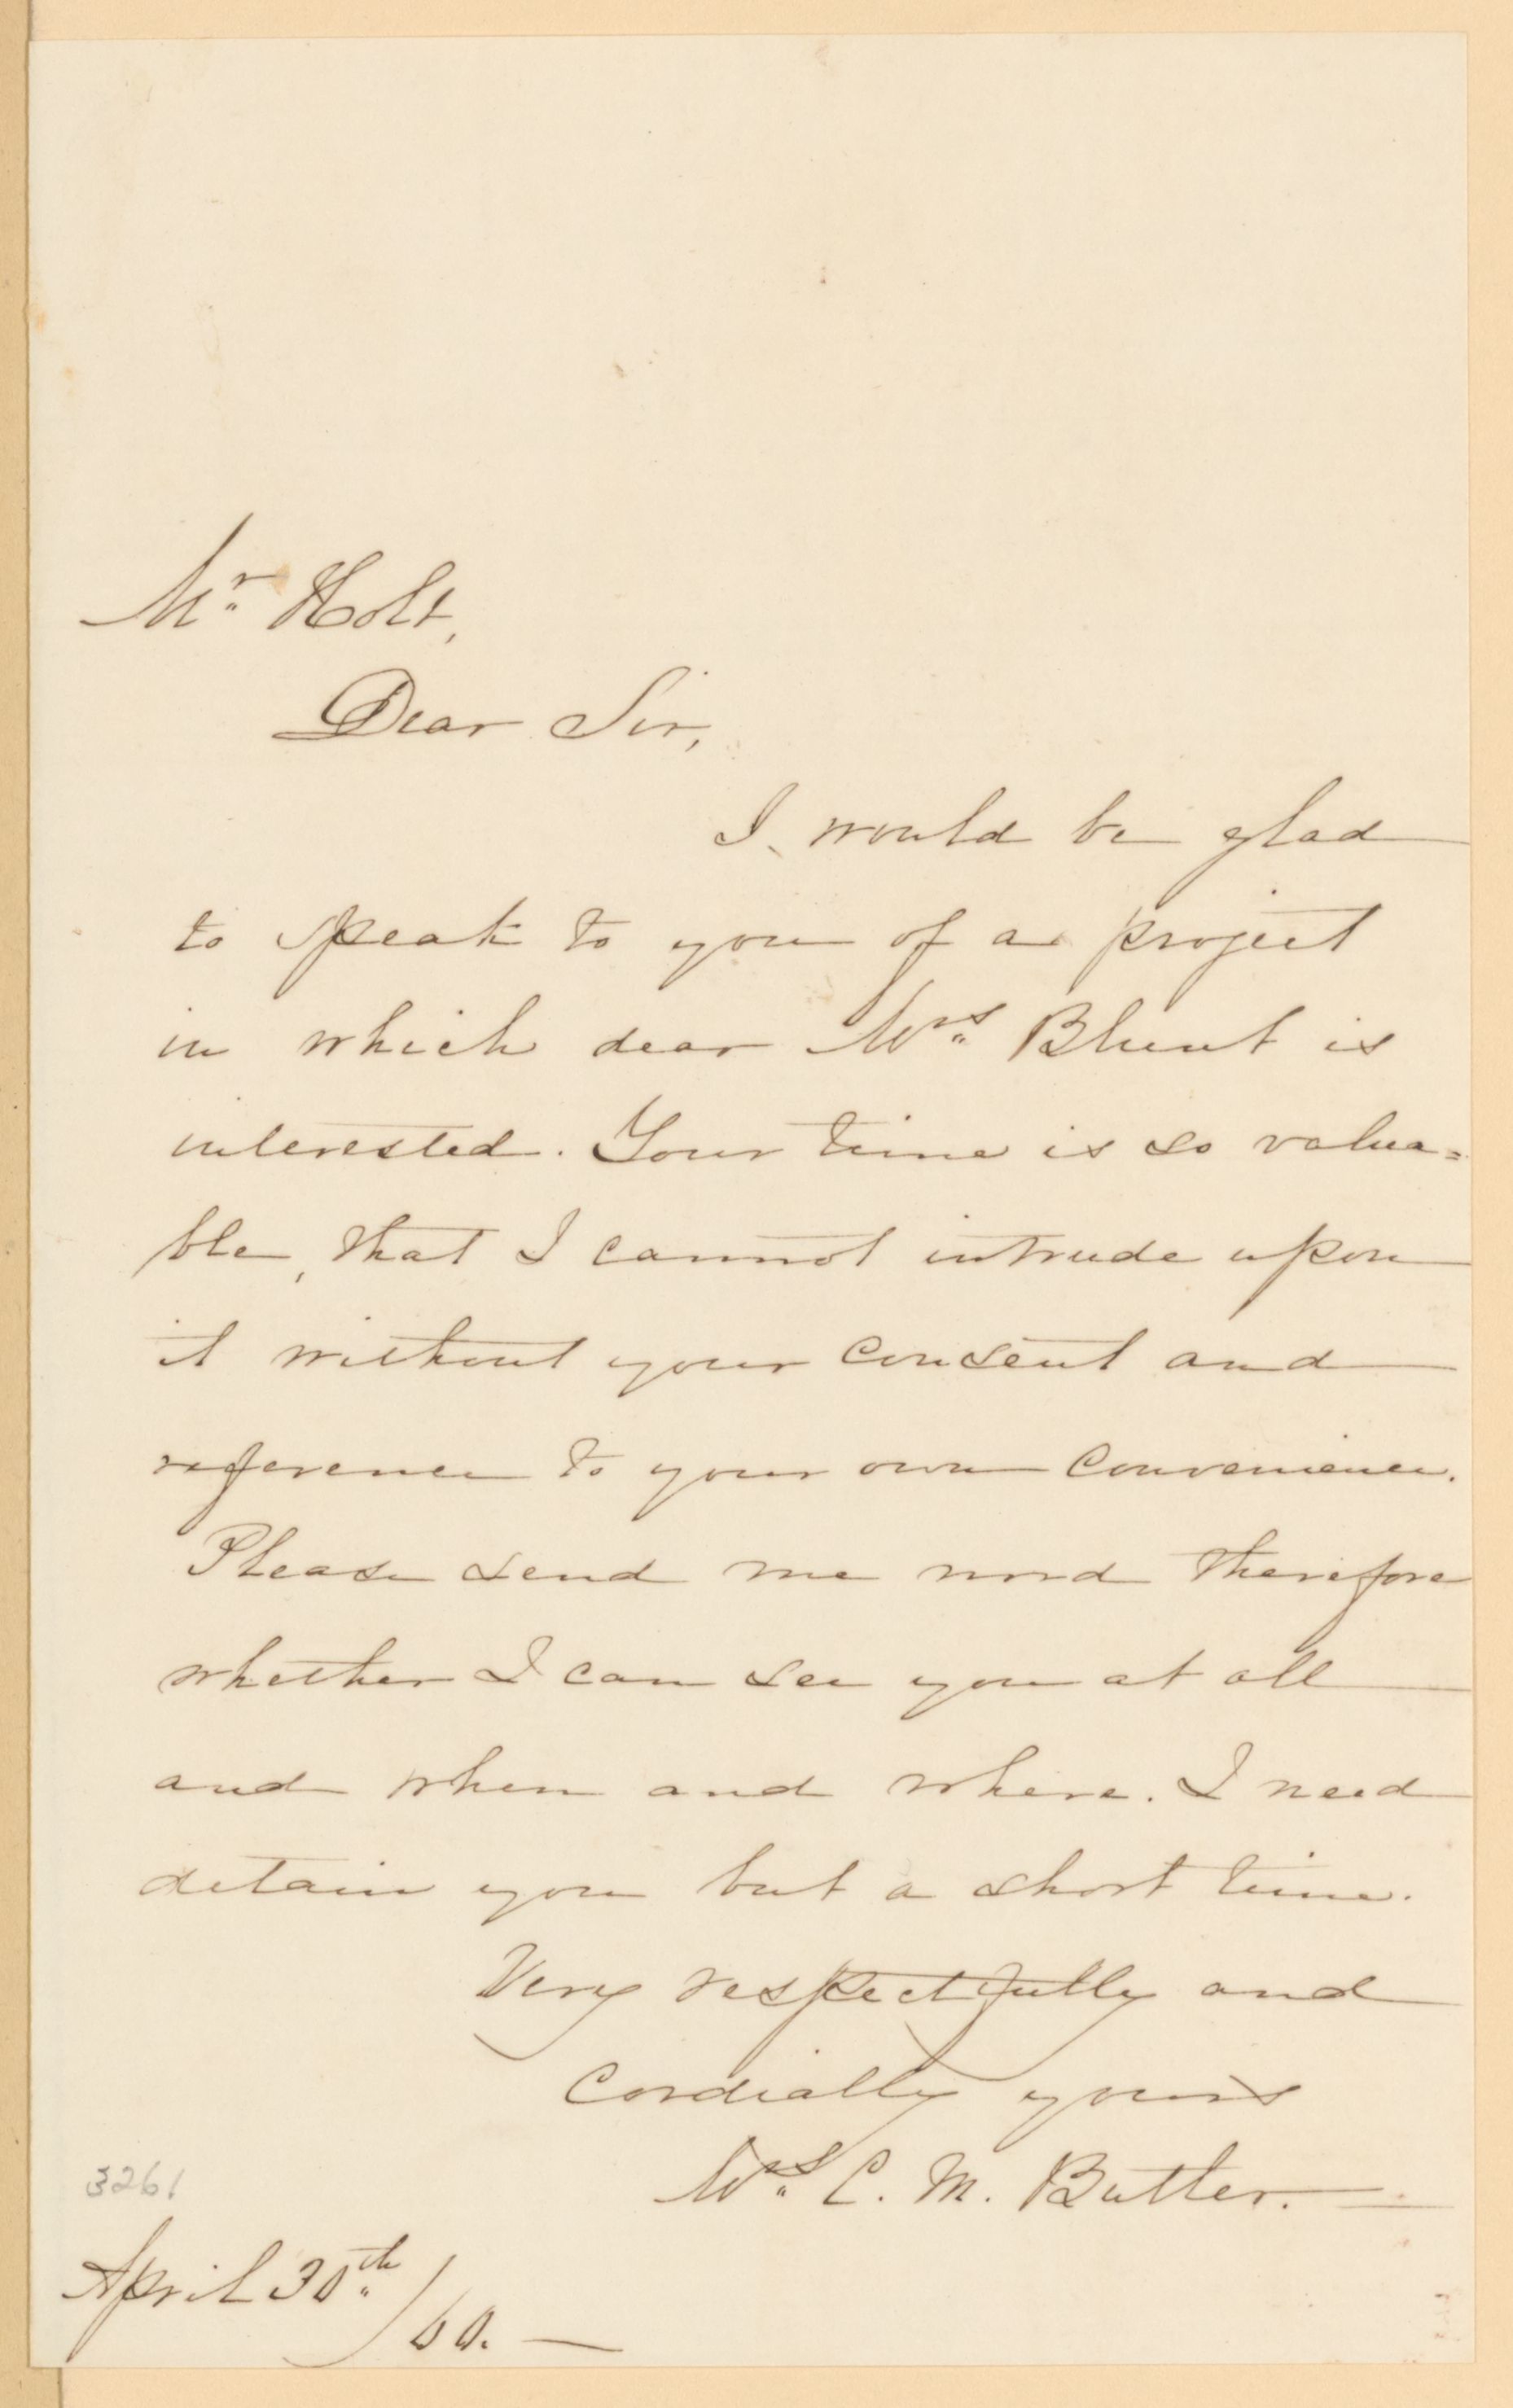 Mr. Holt,
Dear Sir,
I would be glad
to speak to you of a project
in which dear Mrs. Blunt is
interested. Your time is so valua=
ble, that I cannot intrude upon
it without your consent and
reference to your own convenience.
Please send me word therefore
whether I can see you at all
and when and where. I need
detain you but a short time.
Very respectfully and
Cordially yours
Mrs. C. M. Butler.
3261
April 30th./60.